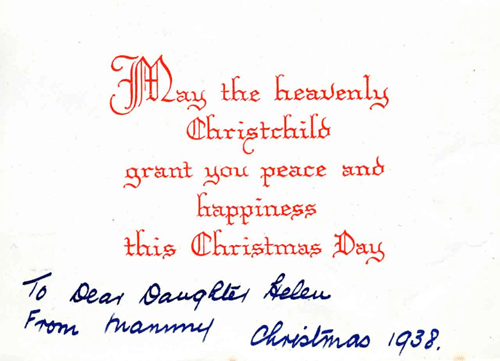 May the heavenly
Christchild
grant you peace and
happiness
this Christmas Day
To Dear Daughter Helen
From Mammy Christmas 1938.